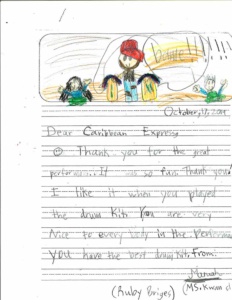 October, 12, 2011
Dear Caribbean Express
Thank you for the great
performanc.. It was so fun. Thank you!
I like it when you played
the drum Kit. You are very
Nice to every body in the Performanc
you have the best drum kit. From:
(Ruby Briges) (MS. Kwan